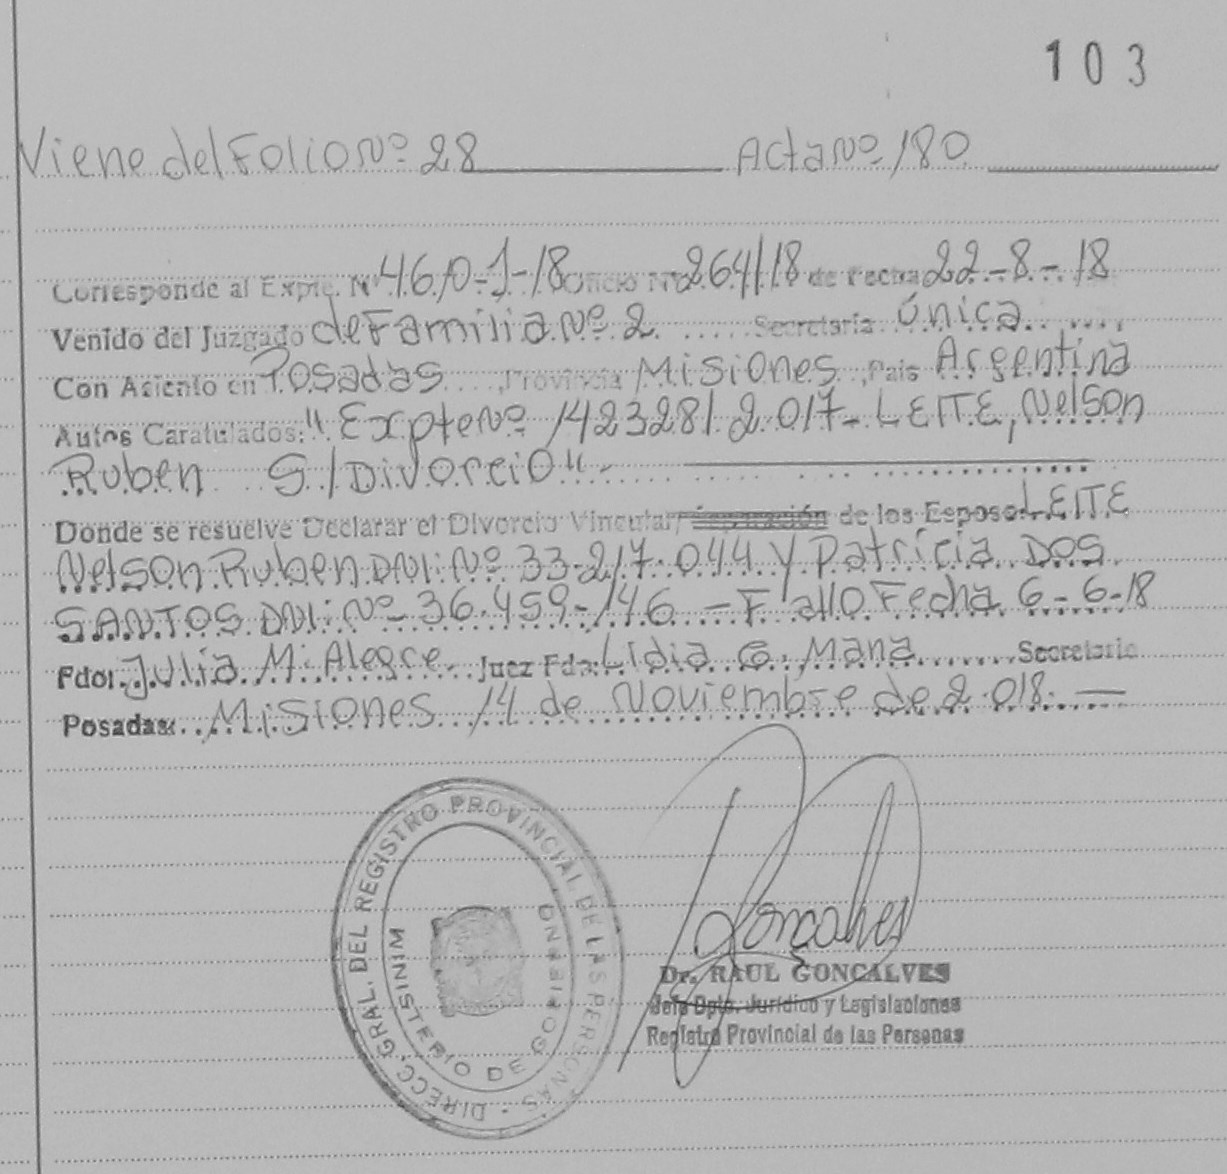 103
Viene del Folio Nº 28 Acta Nº 180
Corresponde al Expte. Nº 460-J-18 Oficio Nº 264/18 de Fecha 22-8-18
Venido del Juzgado de Familia Nº 2 Secretaría Única
Con Asiento en Posadas, Provincia Misiones, País Argentina
Autos Caratulados: "Expte Nº 142328/2017- LEITE, Nelson
Ruben S/Divorcio".
Donde se resuelve Declarar el Divorcio Vincular/Separación de los Esposos LEITE
Nelson Ruben DNI: Nº 33-217.044 y Patricia DOS
SANTOS DNI: Nº 36.459-146 - Fallo Fecha 6-6-18
Fdo: Julia M. Alegre. Juez Fdo: Lidia G. Mana Secretario
Posadas: Misiones 14 de Noviembre de 2.018.
DIRECC. GRAL. DEL REGISTRO PROVINCIAL DE LAS PERSONAS
MINISTERIO DE GOBIERNO MISIONES
Dr. RAUL GONCALVES
Jefe Dpto. Jurídico y Legislaciones
Registro Provincial de las Personas